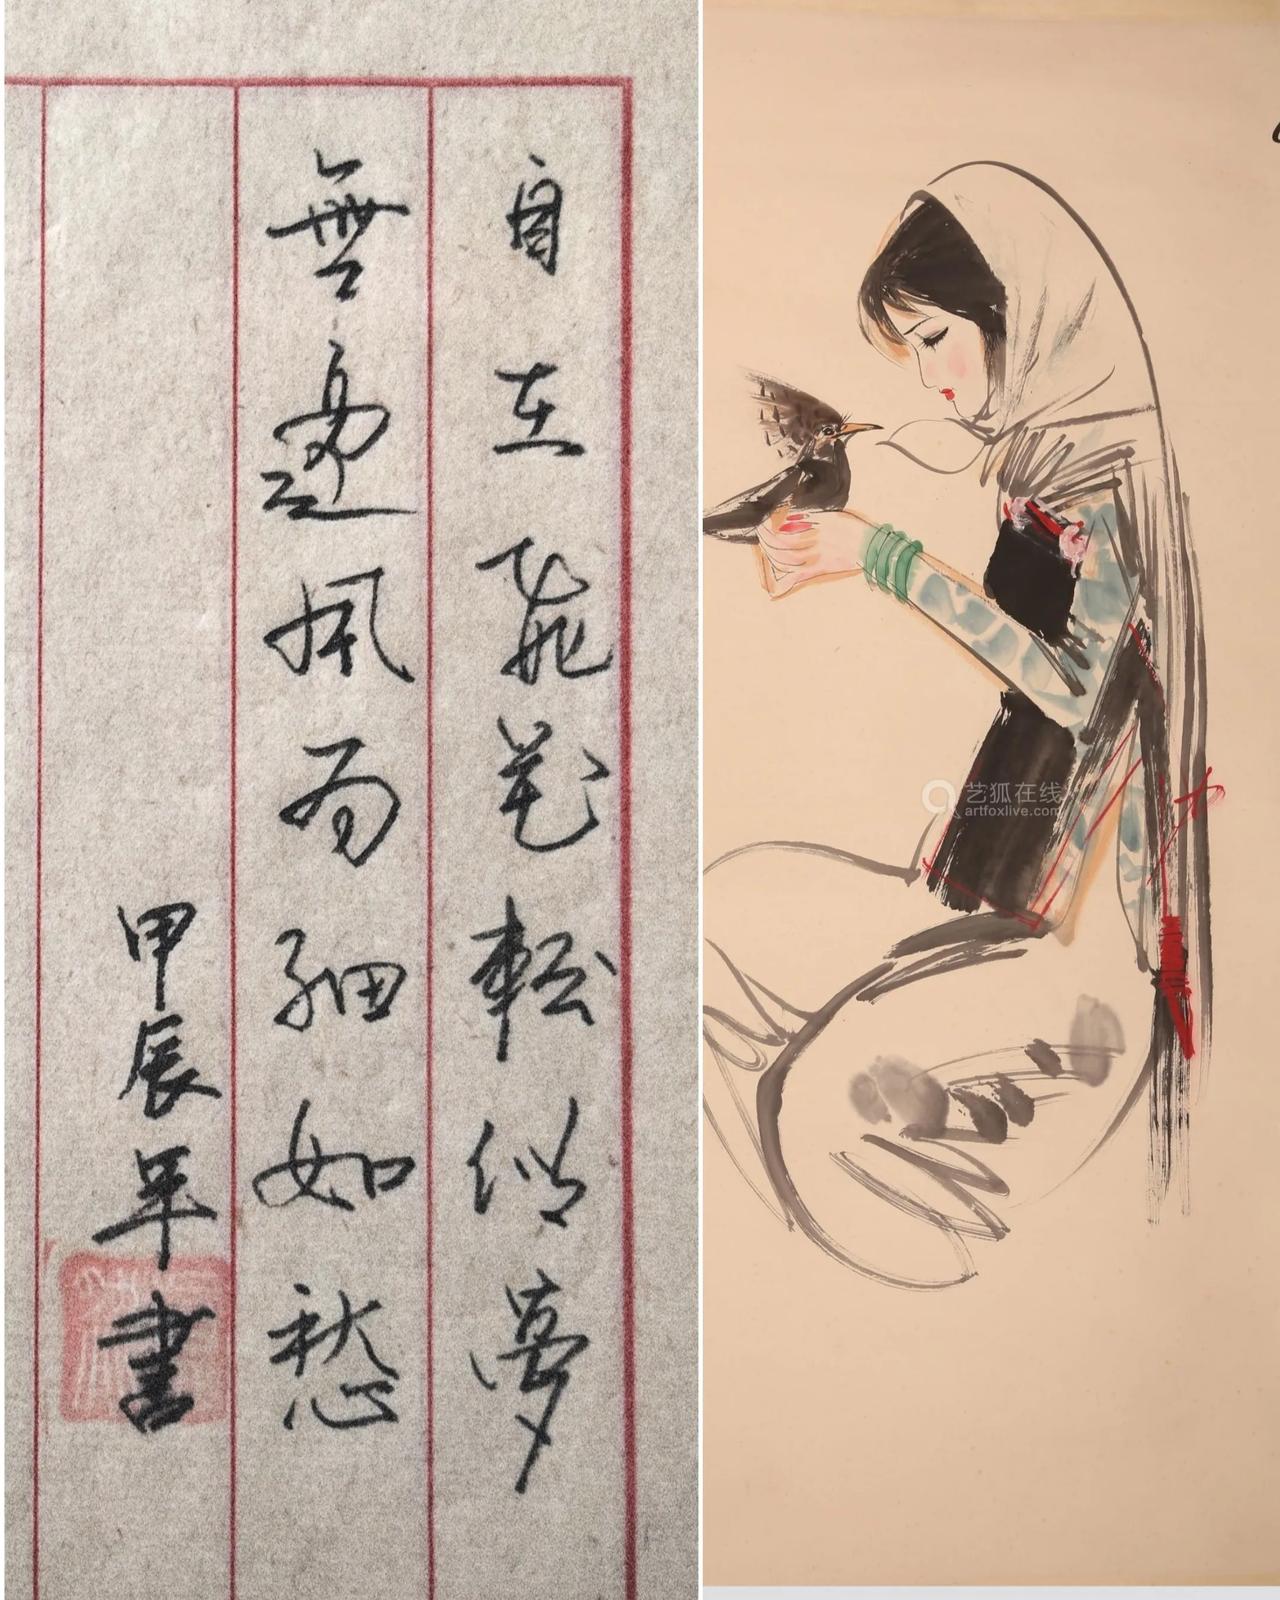 自在飛花輕似夢
無邊風雨細如愁
甲辰年書
艺狐在线
artfoxlive.com